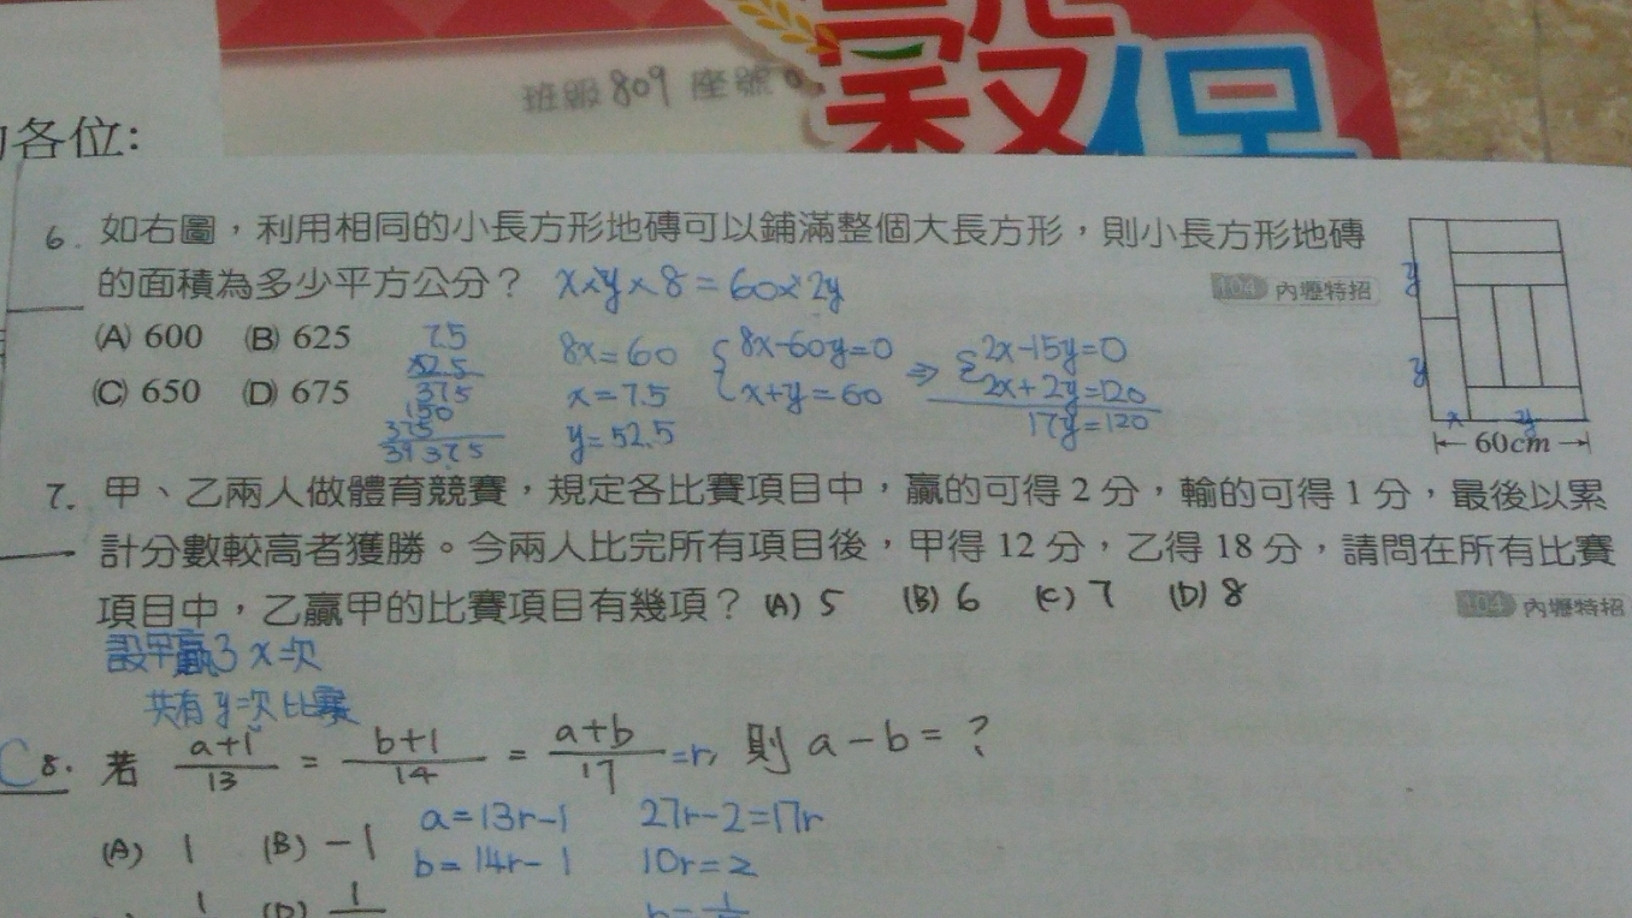 穀保
班級 809 座號 0
各位:
6. 如右圖，利用相同的小長方形地磚可以鋪滿整個大長方形，則小長方形地磚
的面積為多少平方公分？ x×y×8=60×2y
104 內壢特招
(A) 600 (B) 625
(C) 650 (D) 675
7.5
×52.5
375
150
375
39375
8x=60
x=7.5
y=52.5
{8x-60y=0
x+y=60
⇒ {2x-15y=0
2x+2y=120
17y=120
y
y
x y
60cm
7. 甲、乙兩人做體育競賽，規定各比賽項目中，贏的可得 2 分，輸的可得 1 分，最後以累
計分數較高者獲勝。今兩人比完所有項目後，甲得 12 分，乙得 18 分，請問在所有比賽
項目中，乙贏甲的比賽項目有幾項？ (A) 5 (B) 6 (C) 7 (D) 8
104 內壢特招
設甲贏了 x 次
共有 y 次比賽
C 8. 若 a+1/13 = b+1/14 = a+b/17 =r, 則 a-b=?
(A) 1 (B) -1
a=13r-1 27r-2=17r
b=14r-1 10r=2
1 (D) 1